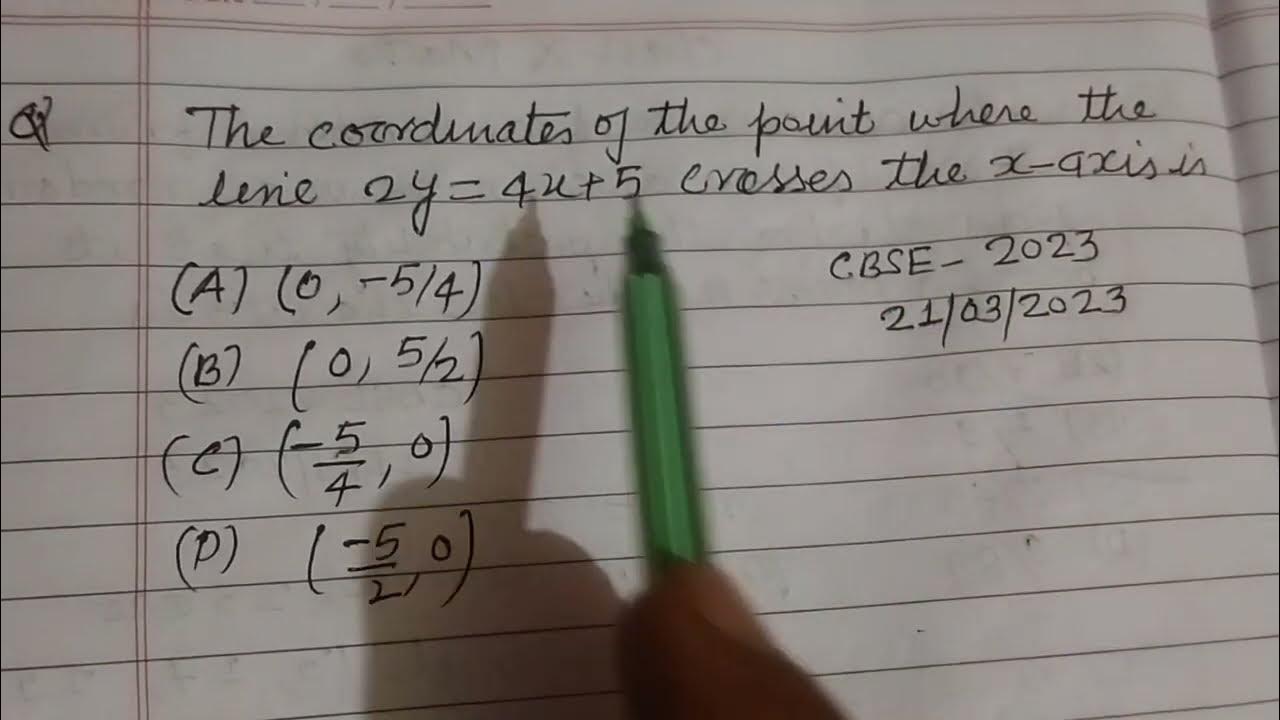 Q
The coordinates of the point where the
line 2y = 4x + 5 crosses the x-axis is
(A) (0, -5/4)
(B) (0, 5/2)
(C) (-5/4, 0)
(D) (-5/2, 0)
CBSE - 2023
21/03/2023